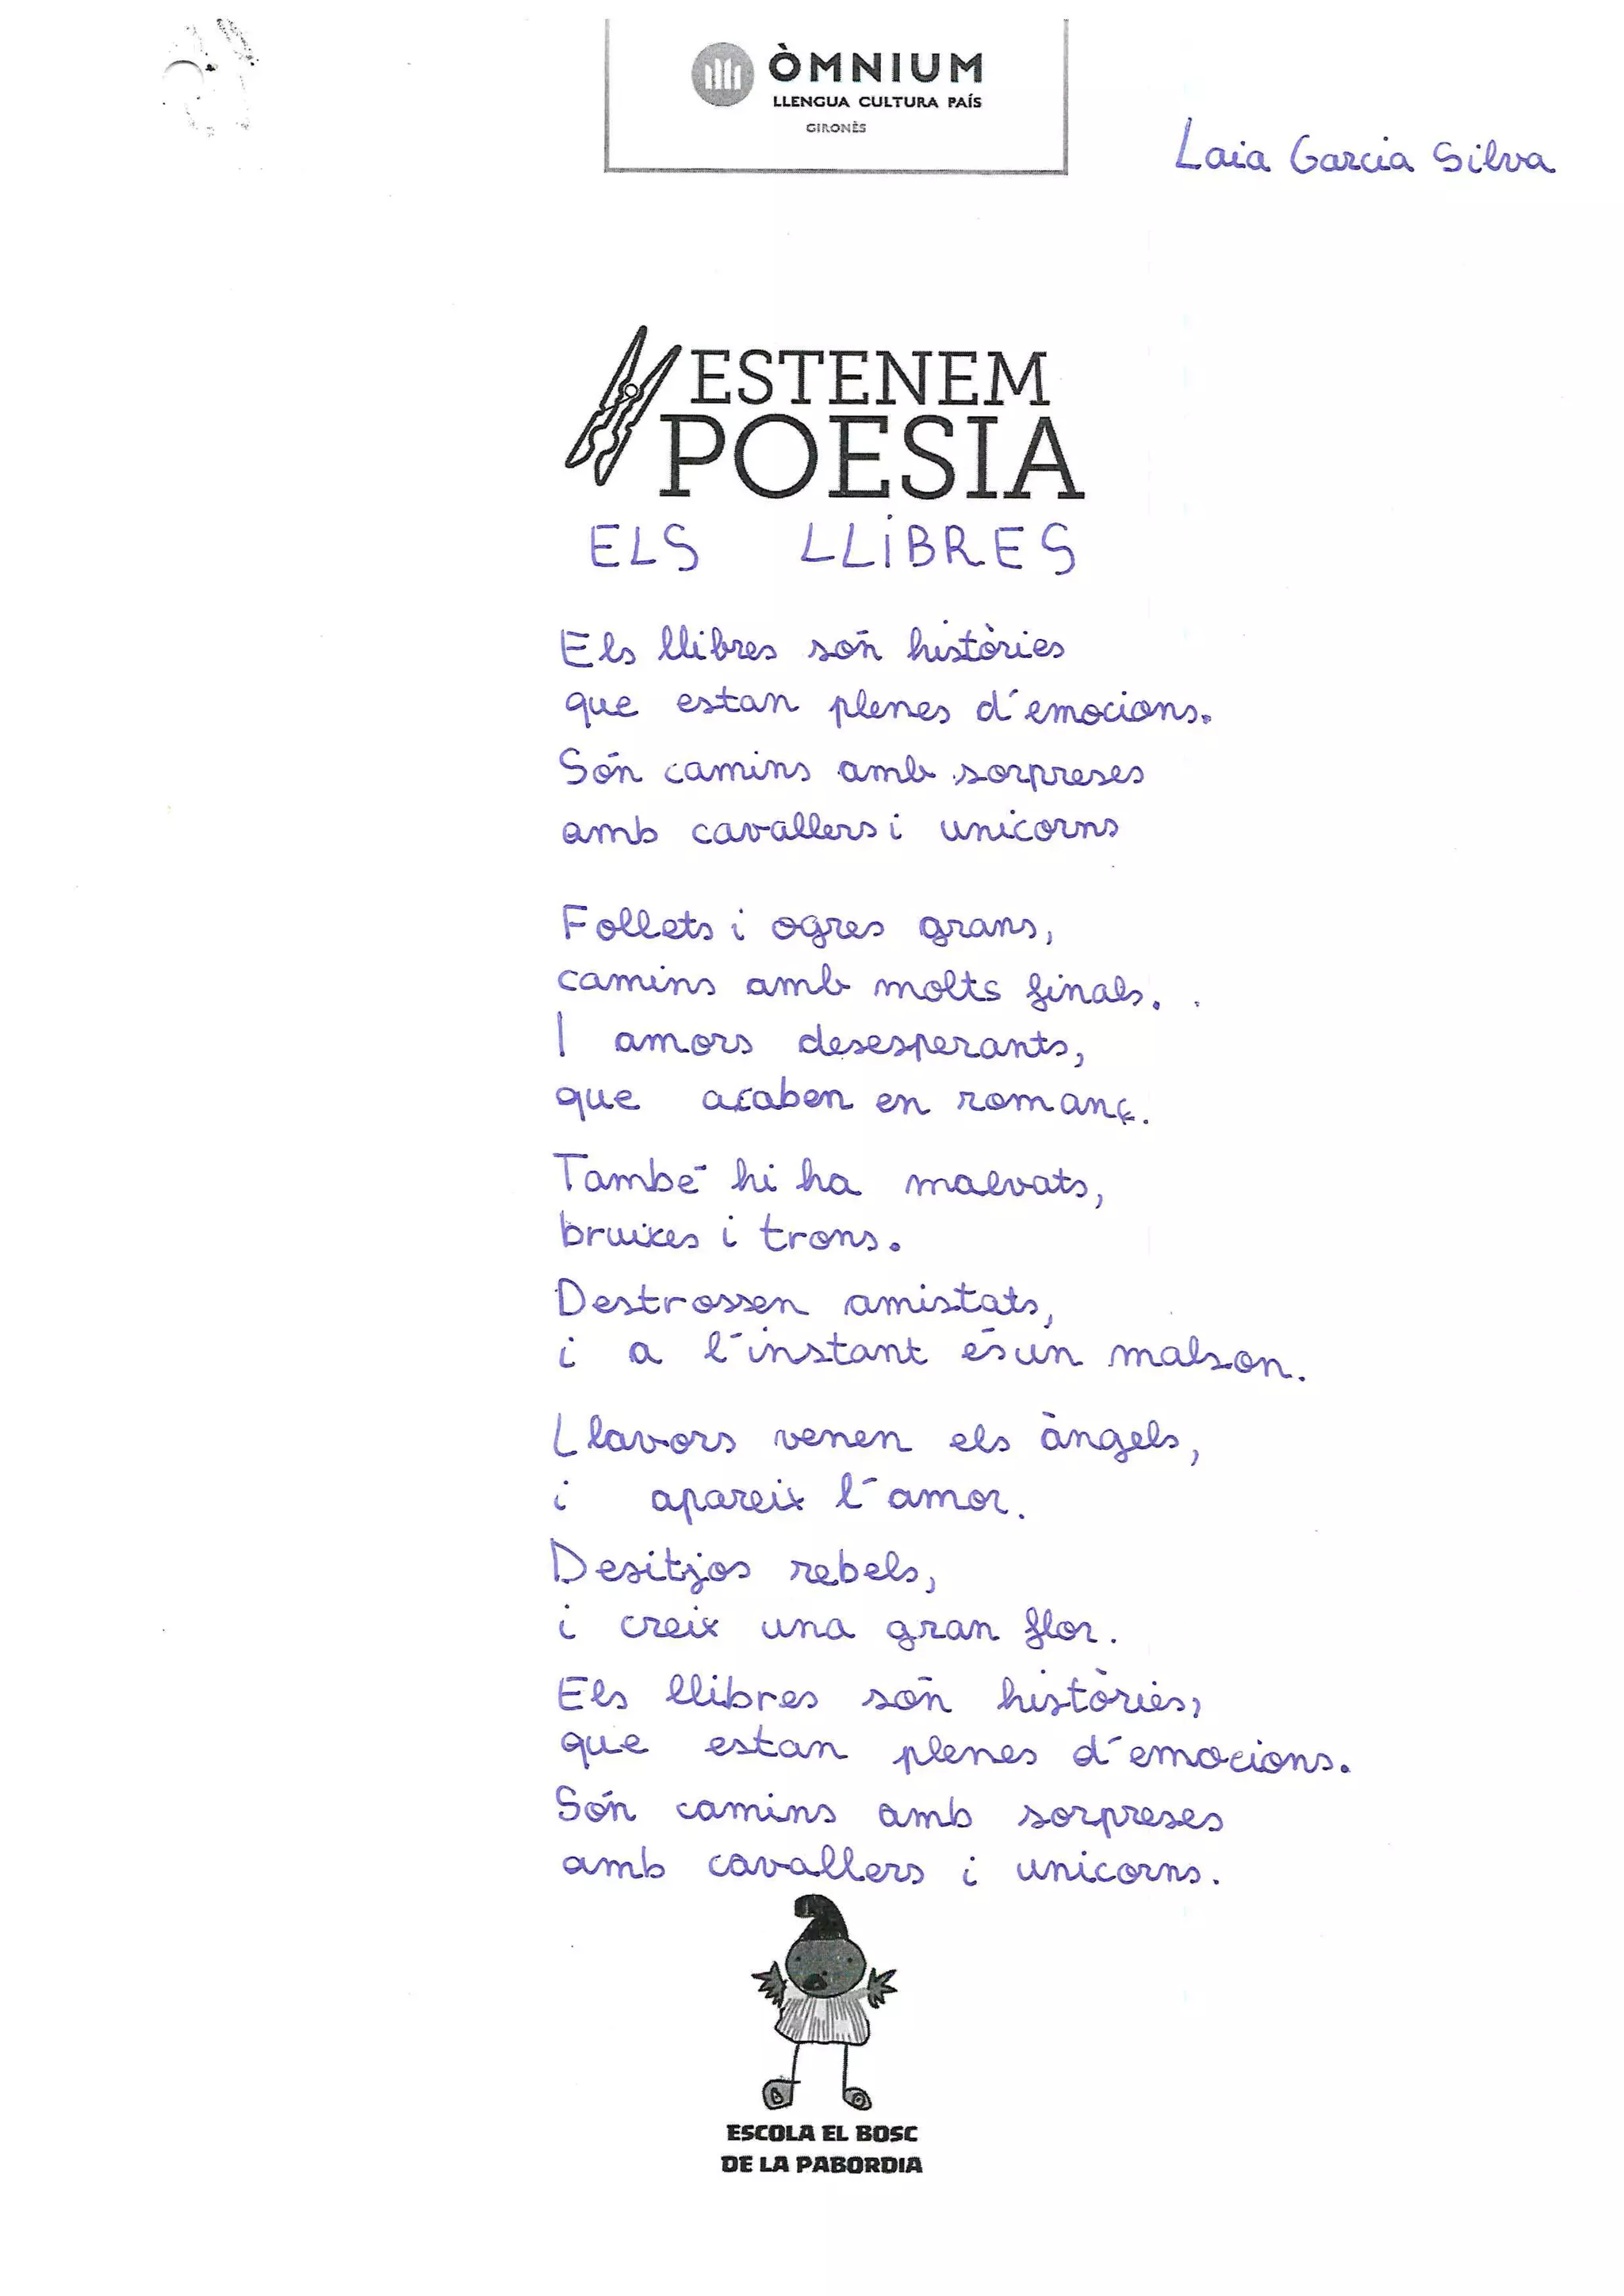 ÒMNIUM
LLENGUA CULTURA PAÍS
GIRONÈS
Laia Garcia Silva
ESTENEM
POESIA
ELS LLIBRES
Els llibres són històries
que estan plenes d'emocions.
Són camins amb sorpreses
amb cavallers i unicorns
Follets i ogres grans,
camins amb molts finals.
I amors desesperants,
que acaben en romanç.
També hi ha malvats,
bruixes i trons.
Destrossen amistats,
i a l'instant és un malson.
Llavors venen els àngels,
i apareix l'amor.
Desitjos rebels,
i creix una gran flor.
Els llibres són històries,
que estan plenes d'emocions.
Són camins amb sorpreses
amb cavallers i unicorns.
ESCOLA EL BOSC
DE LA PABORDIA